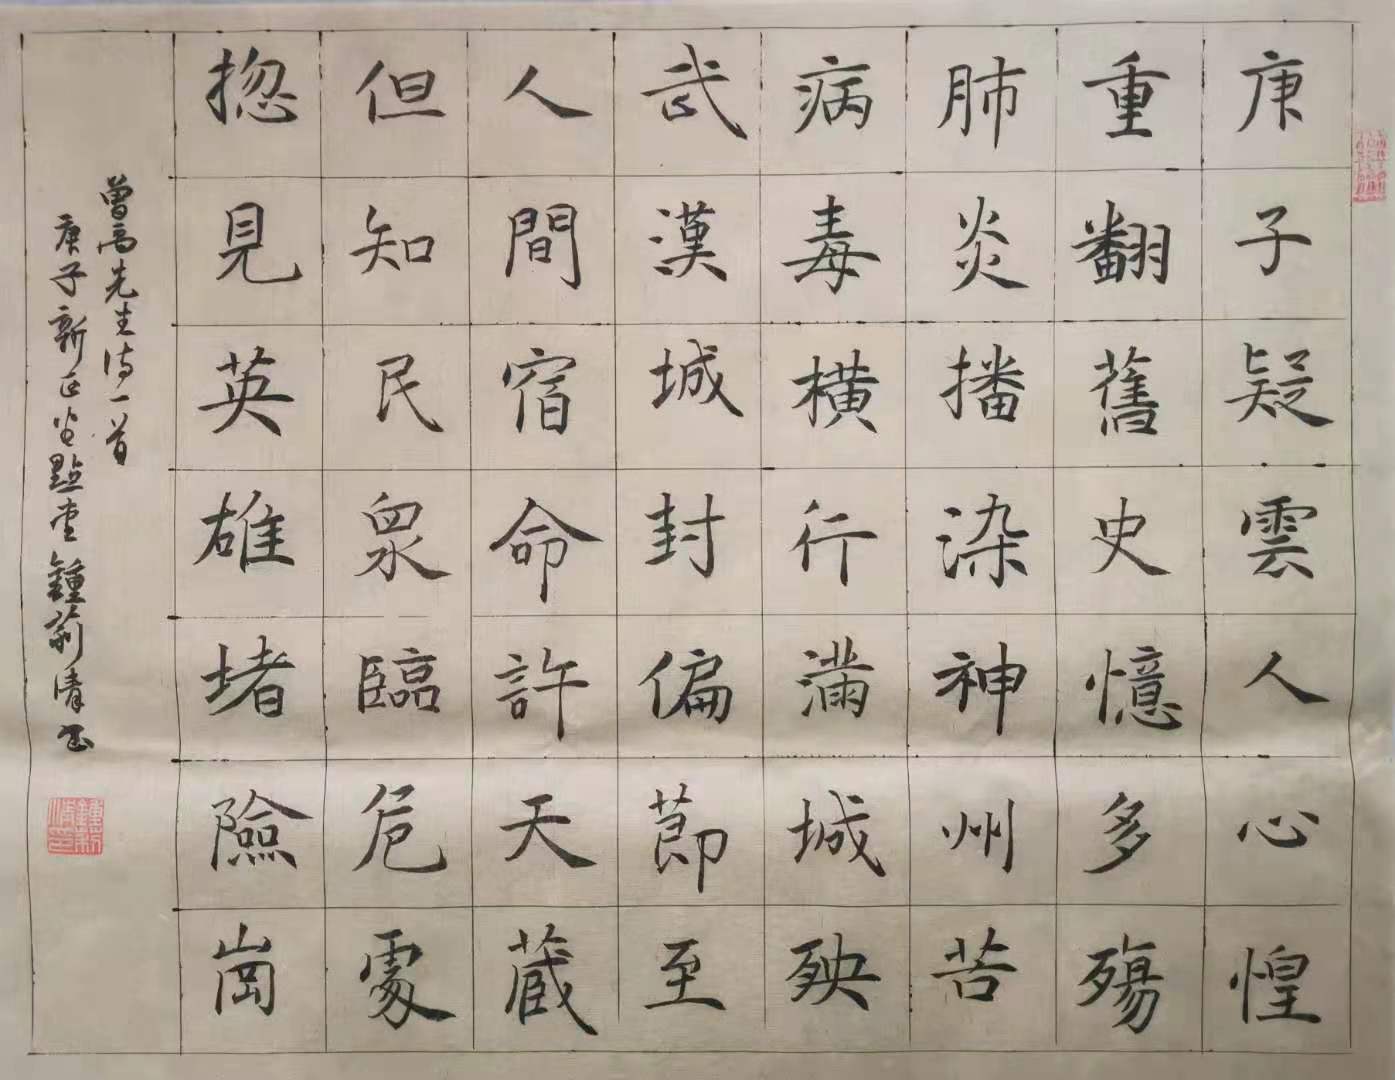 庚子疑雲人心惶
重翻舊史憶多殤
肺炎播染神州苦
病毒橫行滿城殃
武漢城封偏節至
人間宿命許天蔵
但知民眾臨危處
揔見英雄堵險崗
曾高先生诗一首
庚子新正
鍾莉清书